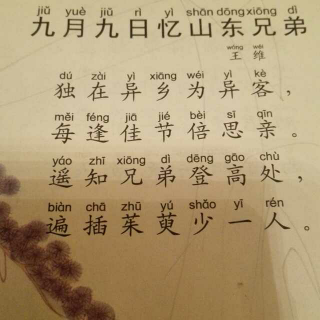 jiǔ yuè jiǔ rì yì shān dōng xiōng dì
九月九日忆山东兄弟
wáng wéi
王维
dú zài yì xiāng wéi yì kè
独在异乡为异客，
měi féng jiā jié bèi sī qīn
每逢佳节倍思亲。
yáo zhī xiōng dì dēng gāo chù
遥知兄弟登高处，
biàn chā zhū yú shǎo yī rén
遍插茱萸少一人。